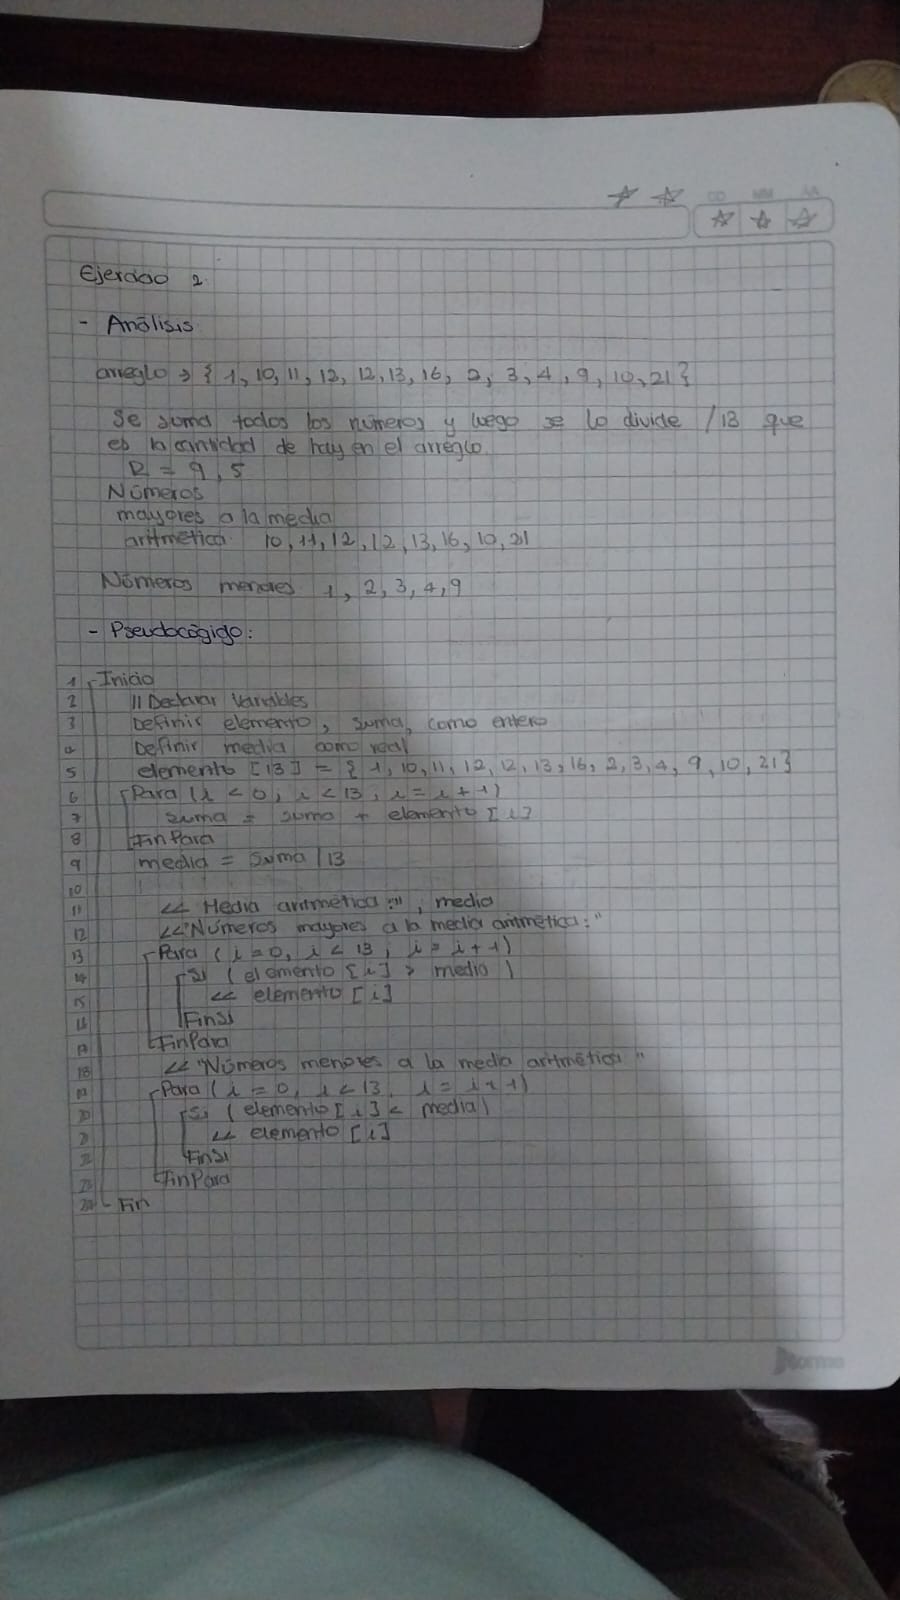 DD MM AA
Ejercicio 2
- Análisis
arreglo → { 1, 10, 11, 12, 12, 13, 16, 2, 3, 4, 9, 10, 21 }
Se suma todos los números y luego se lo divide /13 que
es la cantidad de hay en el arreglo.
R = 9,5
Números
mayores a la media
aritmética 10, 11, 12, 12, 13, 16, 10, 21
Números menores 1, 2, 3, 4, 9
- Pseudocógigo:
1 Inicio
2 // Declarar Variables
3 Definir elemento, suma, como entero
4 Definir media como real
5 elemento [13] = { 1, 10, 11, 12, 12, 13, 16, 2, 3, 4, 9, 10, 21 }
6 Para (i < 0, i < 13, i = i + 1)
7 suma = suma + elemento [i]
8 FinPara
9 media = suma / 13
10
11 << Media aritmética :", media
12 << "Números mayores a la media aritmética: "
13 Para (i = 0, i < 13, i = i + 1)
14 Si (elemento [i] > media)
15 << elemento [i]
16 FinSi
17 FinPara
18 << "Números menores a la media aritmética "
19 Para (i = 0, i < 13, i = i + 1)
20 Si (elemento [i] < media)
21 << elemento [i]
22 FinSi
23 FinPara
24 Fin
norma